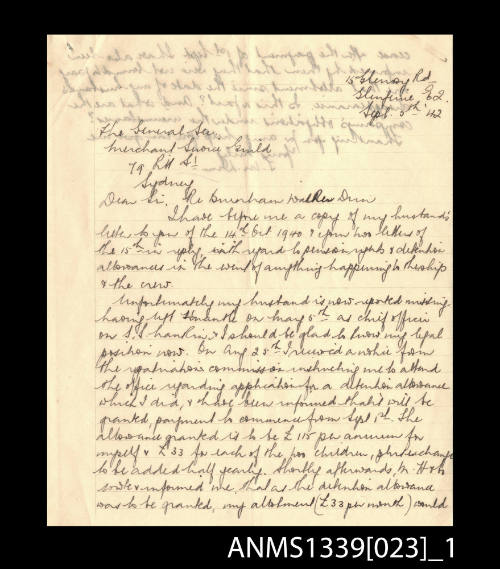 15 Glenroy Rd
Sept. 5th '42
The General Sec.
Merchant Service Guild
79 Pitt St
Sydney
Dear Sir, Re Burnham Walker Dun
I have before me a copy of my husband's
letter to you of the 14th Oct 1940 & your two letters of
the 15th in reply with regard to pension rights & detention
allowances in the event of anything happening to the ship
& the crew.
Unfortunately my husband is now reported missing
having left on May 5th as chief officer
on S.S. & I should be glad to know my legal
position now. On Aug 25th I received a notice from
the repatriation commission instructing me to attend
the office regarding application for a detention allowance
which I did, & have been informed that it will be
granted, payment to commence from Sept 1st. The
allowance granted is to be £115 per annum for
myself & £33 for each of the two children, plus exchange
to be added half yearly. Shortly afterwards,
wrote & informed me, that as the detention allowance
was to be granted, my allotment (£33 per month) would
ANMS1339[023]_1